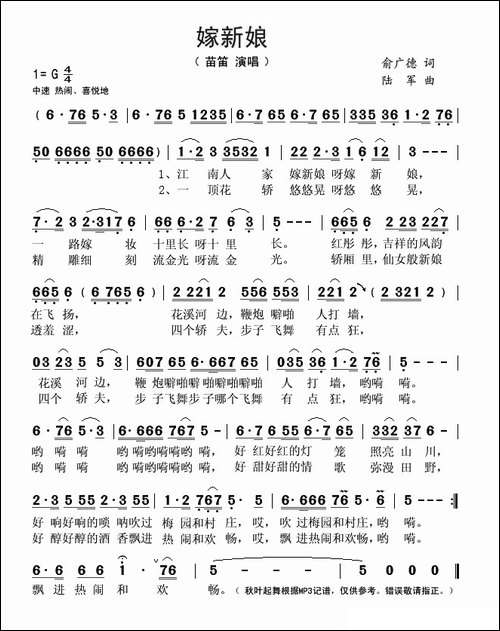 嫁新娘
（ 苗笛 演唱 ）
1= G 4/4
俞广德 词
中速 热闹、喜悦地
陆 军 曲
( 6·76 5·3 | 6·765 1235 | 6·765 6765 | 335 36 1·2 76 |
50 6666 50 6666) | 1·2 3 3532 1 | 22 2·3 16 12 | 2 - - - |
1、江 南人 家 嫁新娘 呀嫁 新 娘，
2、一 顶花 轿 悠悠晃 呀悠 悠 晃，
一 路嫁 妆 十里长 呀十 里 长。 红彤 彤，吉祥的风韵
精 雕细 刻 流金光 呀流 金 光。 轿厢 里，仙女般新娘
665 6 ( 6 765 6 ) | 2 221 2 556 556 | 2 221 2 ( 2 321 2 ) |
在飞 扬， 花溪河 边，鞭炮 噼啪 人打 墙，
透羞 涩， 四个轿 夫，步子 飞舞 有点 狂，
03 23 5 5 3 | 607 65 6·667 65 | 035 36 1·2 76 | 5 - - - |
花溪 河边， 鞭 炮噼啪噼 啪噼啪噼啪 人 打 墙，哟嗬 嗬。
四个 轿夫， 步 子飞舞步子哪个飞舞 有 点 狂，哟嗬 嗬。
哟 嗬嗬 哟 哟嗬哟嗬哟 嗬， 好 红好红的灯 笼 照亮 山 川，
哟 嗬嗬 哟 哟嗬哟嗬哟 嗬， 好 甜好甜的情 歌 弥漫 田 野，
好 响好响的唢 呐吹过 梅 园和村 庄，哎， 吹 过梅园和村庄，哟 嗬。
好 醇好醇的酒 香飘进 热 闹和欢 畅，哎， 飘 进热闹和欢畅，哟 嗬。
飘 进 热 闹 和 欢 畅。（ 秋叶起舞根据MP3记谱，仅供参考。错误敬请指正。）